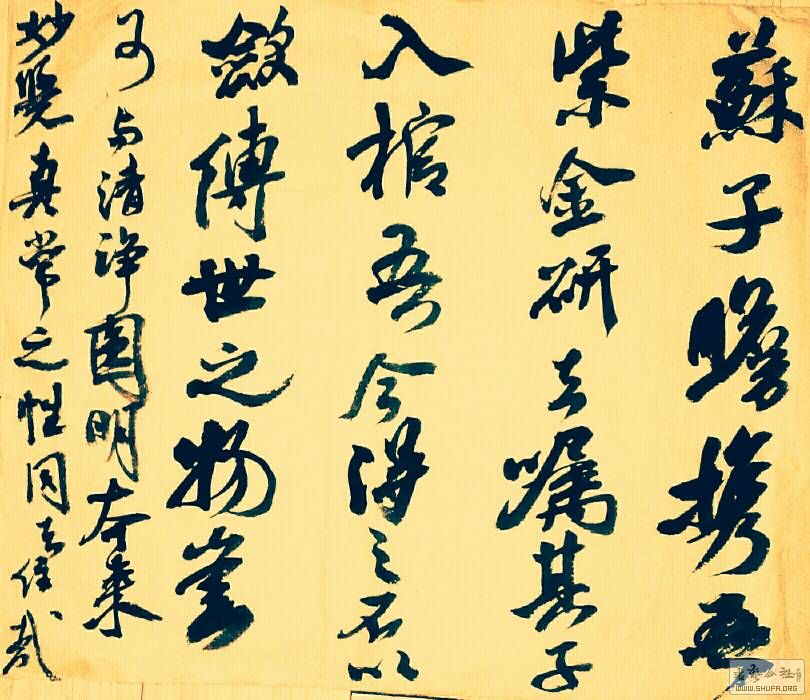 蘇子瞻携吾
紫金研去嘱其子
入棺吾今得之不以
斂傳世之物豈
可与清净圓明本来
妙覺真常之性同去住哉
WWW.SHUFA.ORG